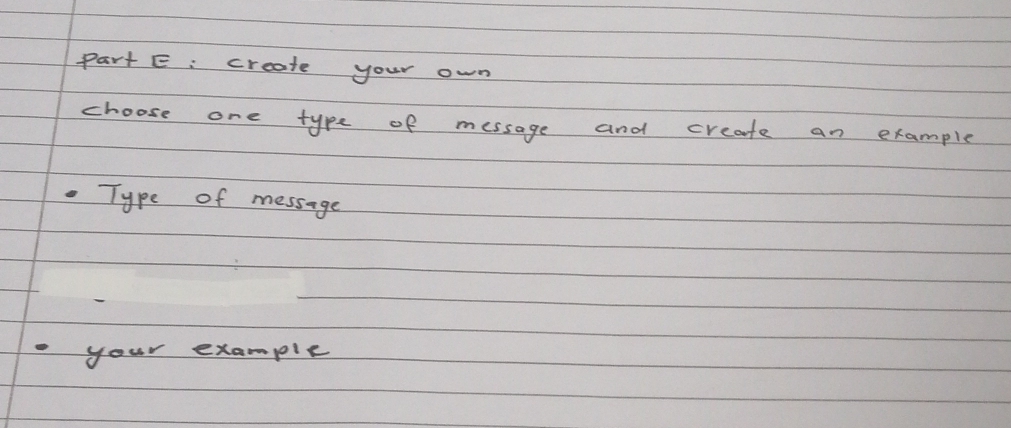 Part E : create your own
choose one type of message and create an example
• Type of message
• your example